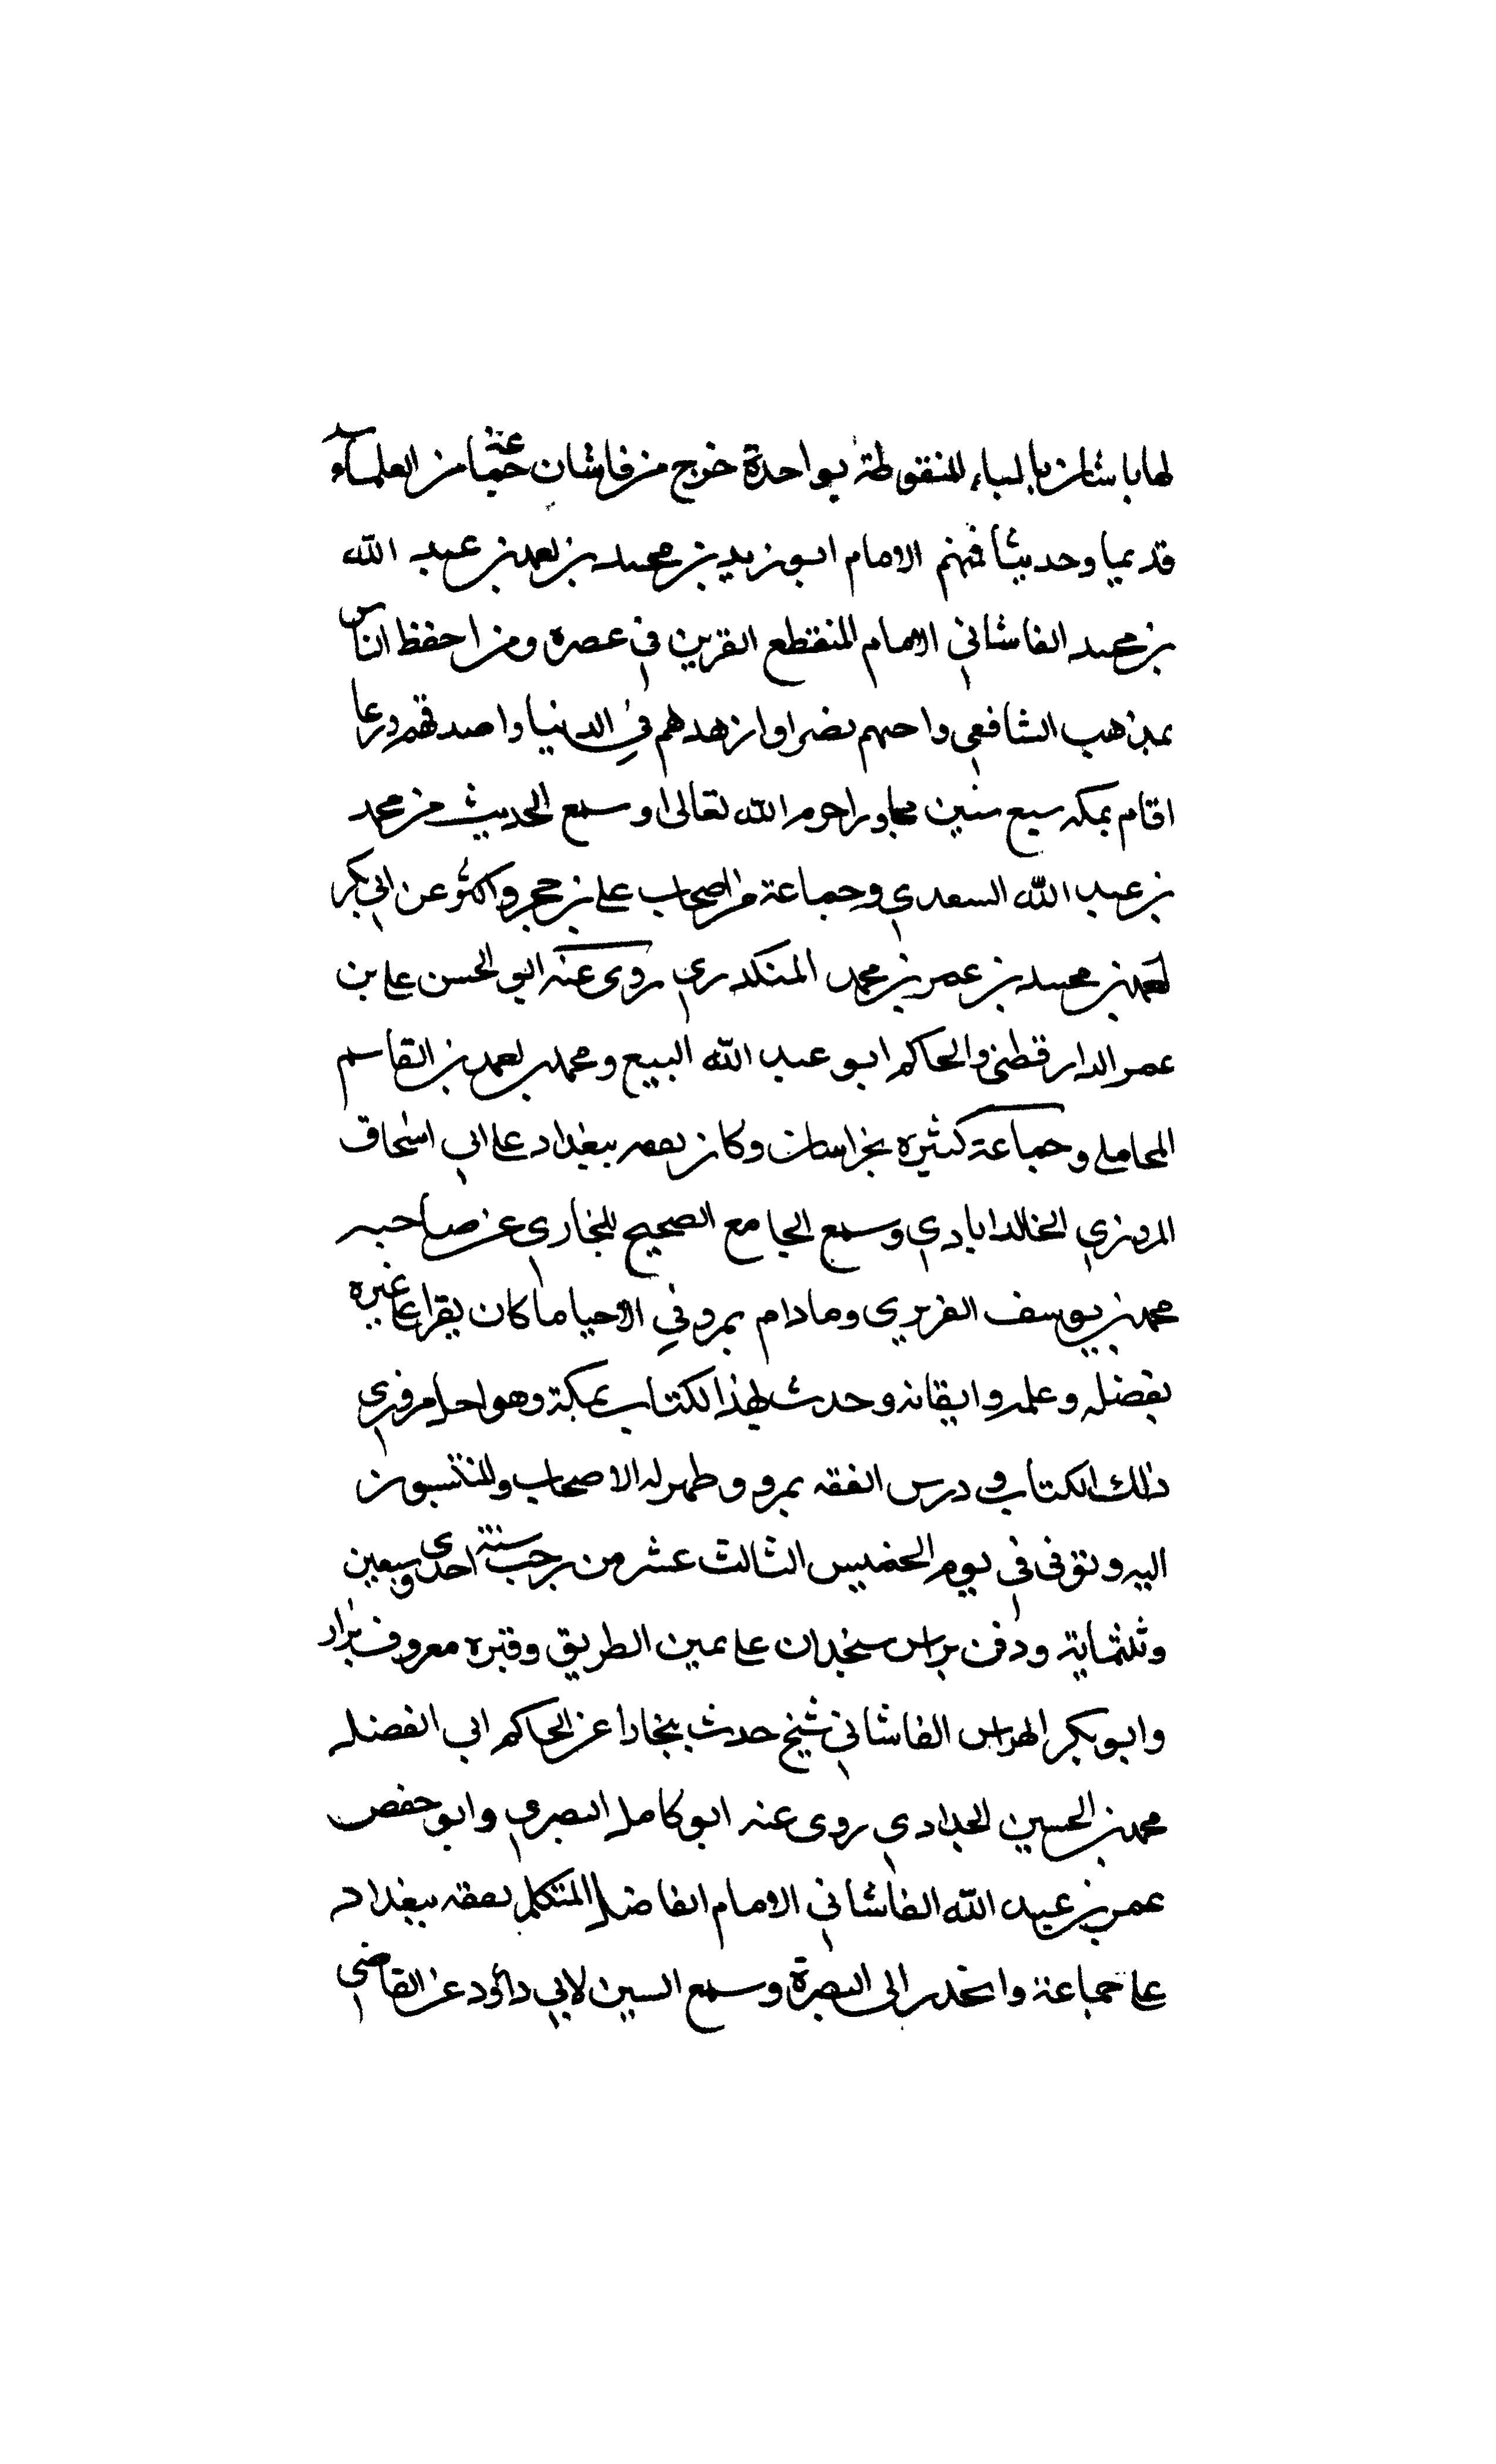 لها باشان بالباء المنقوطة بواحدة خرج من فاشان جماعة من العلماء
قديما وحديثا فمنهم الامام ابو زيد بن محمد بن احمد بن عبد الله
بن محمد الفاشاني الامام المنقطع القرين في عصره ومن احفظ الناس
بمذهب الشافعي واحسنهم نضرا وازهدهم في الدنيا واصدقهم ورعا
اقام بمكه سبع سنين مجاورا حرم الله تعالى وسمع الحديث من محمد
بن عبد الله السعدي وجماعة من اصحاب علي بن حجر واكثر عن ابي بكر
احمد بن محمد بن عمر بن محمد المنكدري روى عنه ابو الحسن علي بن
عمر الدارقطني والحاكم ابو عبد الله البيع ومحمد بن احمد بن القاسم
المحاملي وجماعة كثيره بخراسان وكان تفقه ببغداد على ابي اسحاق
المروزي الخالداباذي وسمع الجامع الصحيح للبخاري عن صاحبه
محمد بن يوسف الفربري وما دام بمرو في الاحيا ما كان يقرا على غيره
بفضله وعلمه وايقانه وحدث بهذا الكتاب بمكة وهو اجل من روى
ذلك الكتاب ودرس الفقه بمرو وظهر له الاصحاب والمنتسبون
اليه وتوفى في يوم الخميس الثالث عشر من رجب سنة احدى وسبعين
وثلثماية ودفن براس سنجدان على يمين الطريق وقبره معروف يزار
وابو بكر الهراس الفاشاني شيخ حدث ببخارا عن الحاكم ابي الفضل
محمد بن الحسين الحدادي روى عنه ابو كامل البصري وابو حفص
عمر بن عبد الله الفاشاني الامام الفاضل المتكلم تفقه ببغداد
على جماعة وانحدر الى البصرة وسمع السنن لابي داؤد عن القاضي